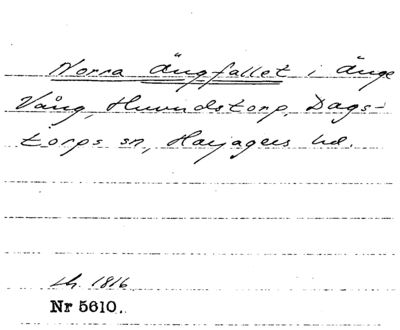 Norra ängfallet i Änge
Vång, Hurvidstorp, Dags-
torps sn, Harjagers hd.
sh. 1816
Nr 5610.